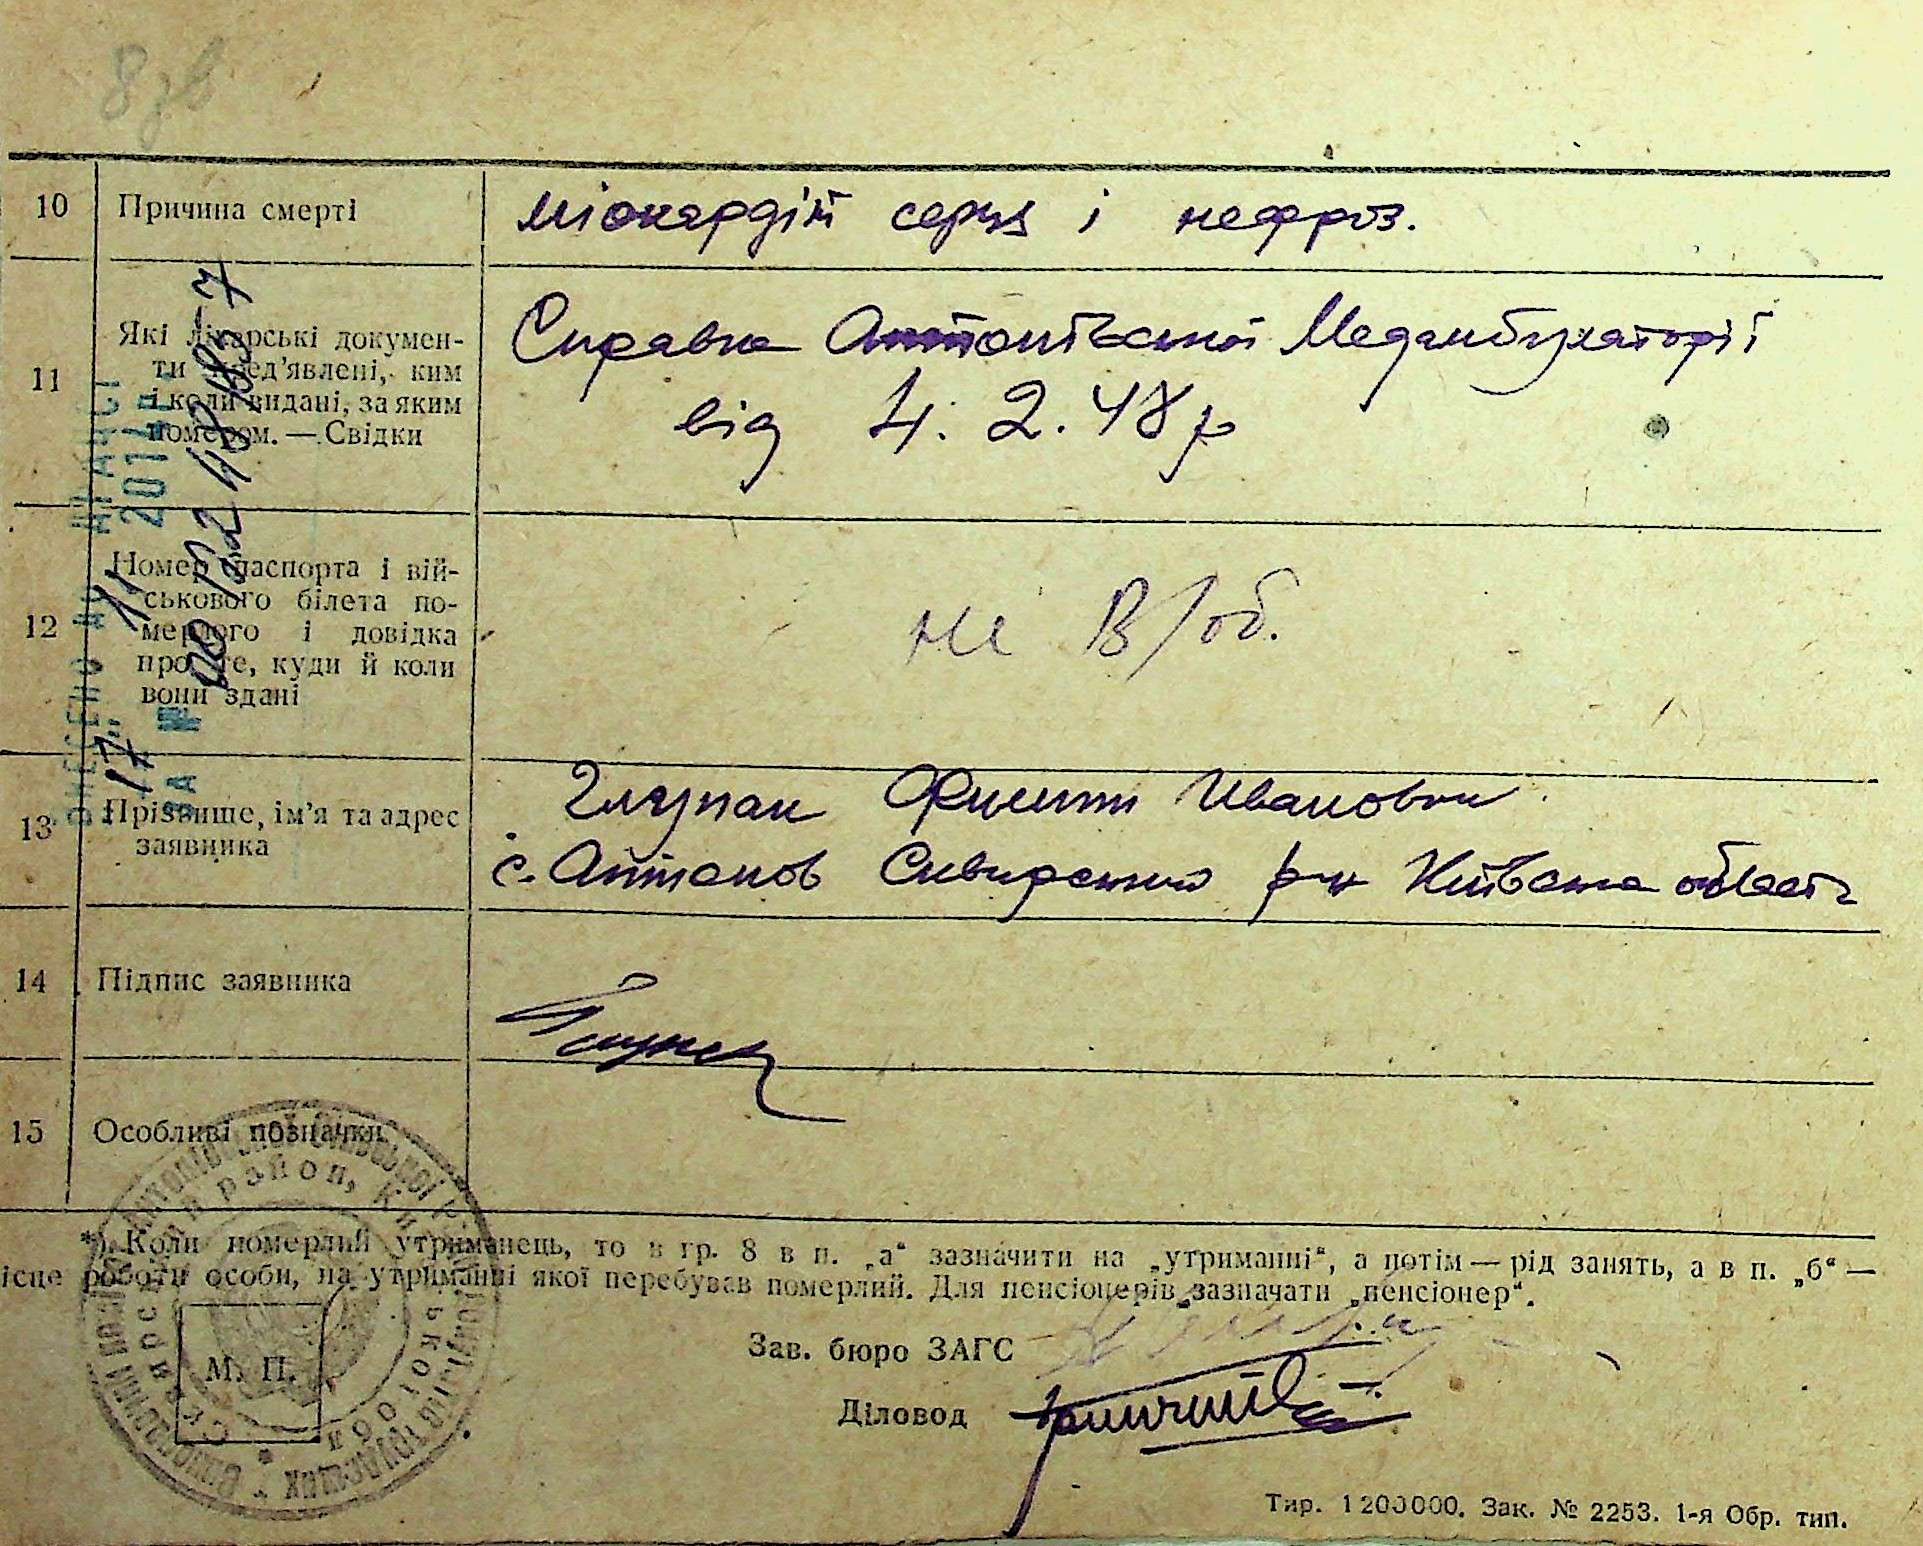 10 Причина смерті міокардіт серця і нефроз.
11 Які лікарські докумен-
ти пред'явлені, ким
і коли видані, за яким
номером. — Свідки
Справка Антонівської Медамбулаторії
від 4. 2. 48 р
12 Номер паспорта і вій-
ськового білета по-
мерлого і довідка
про те, куди й коли
вони здані
не в/об.
13 Прізвище, ім'я та адрес
заявника
Иванович
с. Антонов Сквирського р-н Київська область
14 Підпис заявника
15 Особливі позначки
*) Коли померлий утриманець, то в гр. 8 в п. „а“ зазначити на „утриманні“, а потім — рід занять, а в п. „б“ —
ісце роботи особи, на утриманні якої перебував померлий. Для пенсіонерів зазначати „пенсіонер“.
Зав. бюро ЗАГС
М. П.
Діловод
Тир. 1200000. Зак. № 2253. 1-я Обр. тип.
ВНЕСЕНО ДО ДРАЦСГ
„17“ 11
ЗА №
район, Київської обл